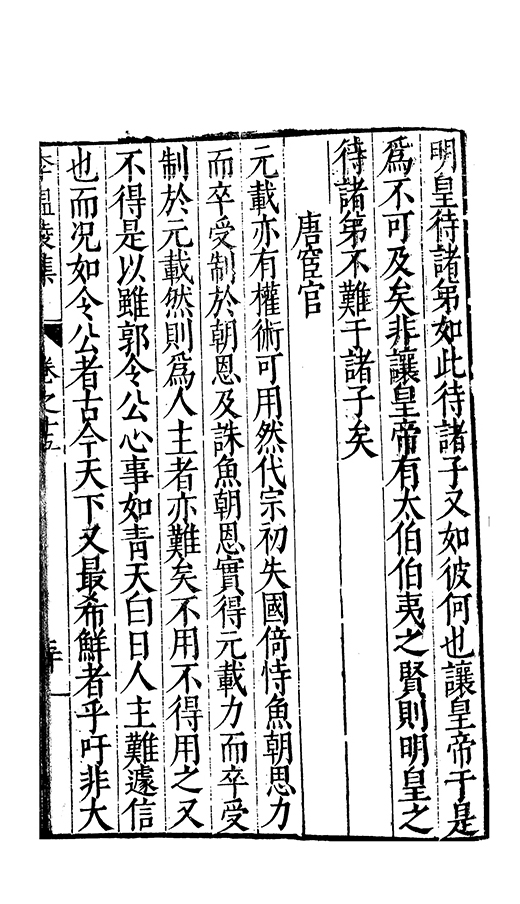 明皇待諸弟如此待諸子又如彼何也讓皇帝于是
爲不可及矣非讓皇帝有太伯伯夷之賢則明皇之
待諸弟不難于諸子矣
唐宦官
元載亦有權術可用然代宗初失國倚恃魚朝恩力
而卒受制於朝恩及誅魚朝恩實得元載力而卒受
制於元載然則爲人主者亦難矣不用不得用之又
不得是以雖郭令公心事如青天白日人主難遽信
也而况如令公者古今天下又最希鮮者乎吁非大
李温陵集 卷之十五